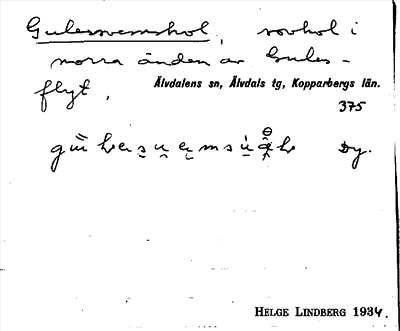 Gulesvemshol, sovhol i
norra änden av Gules-
flyt,
Älvdalens sn, Älvdals tg, Kopparbergs län.
375
Dy.
HELGE LINDBERG 1934.